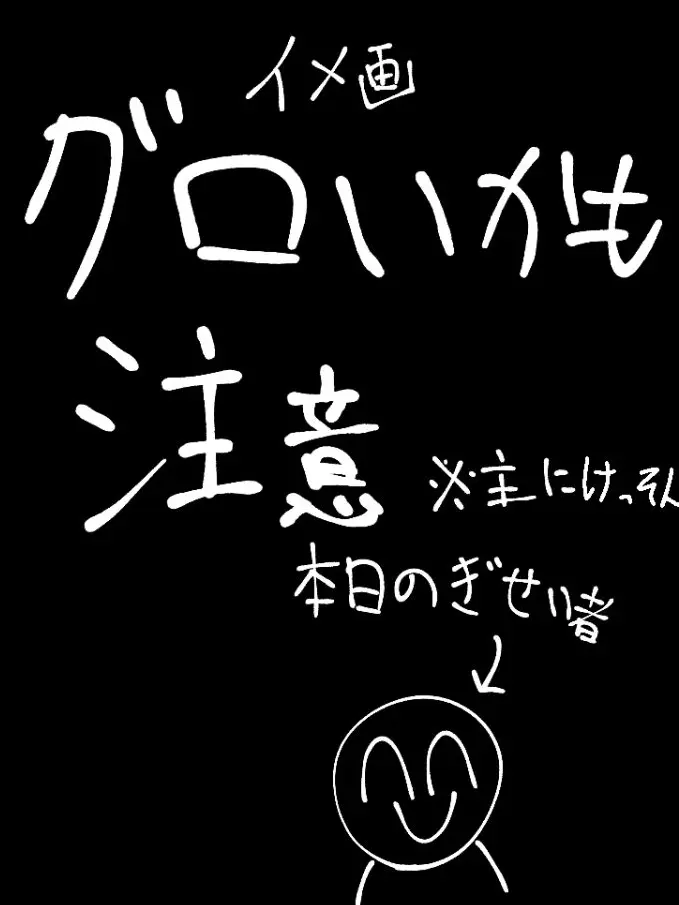 イメ画
グロいかも
注意
※主にけっそん
本日のぎせい者